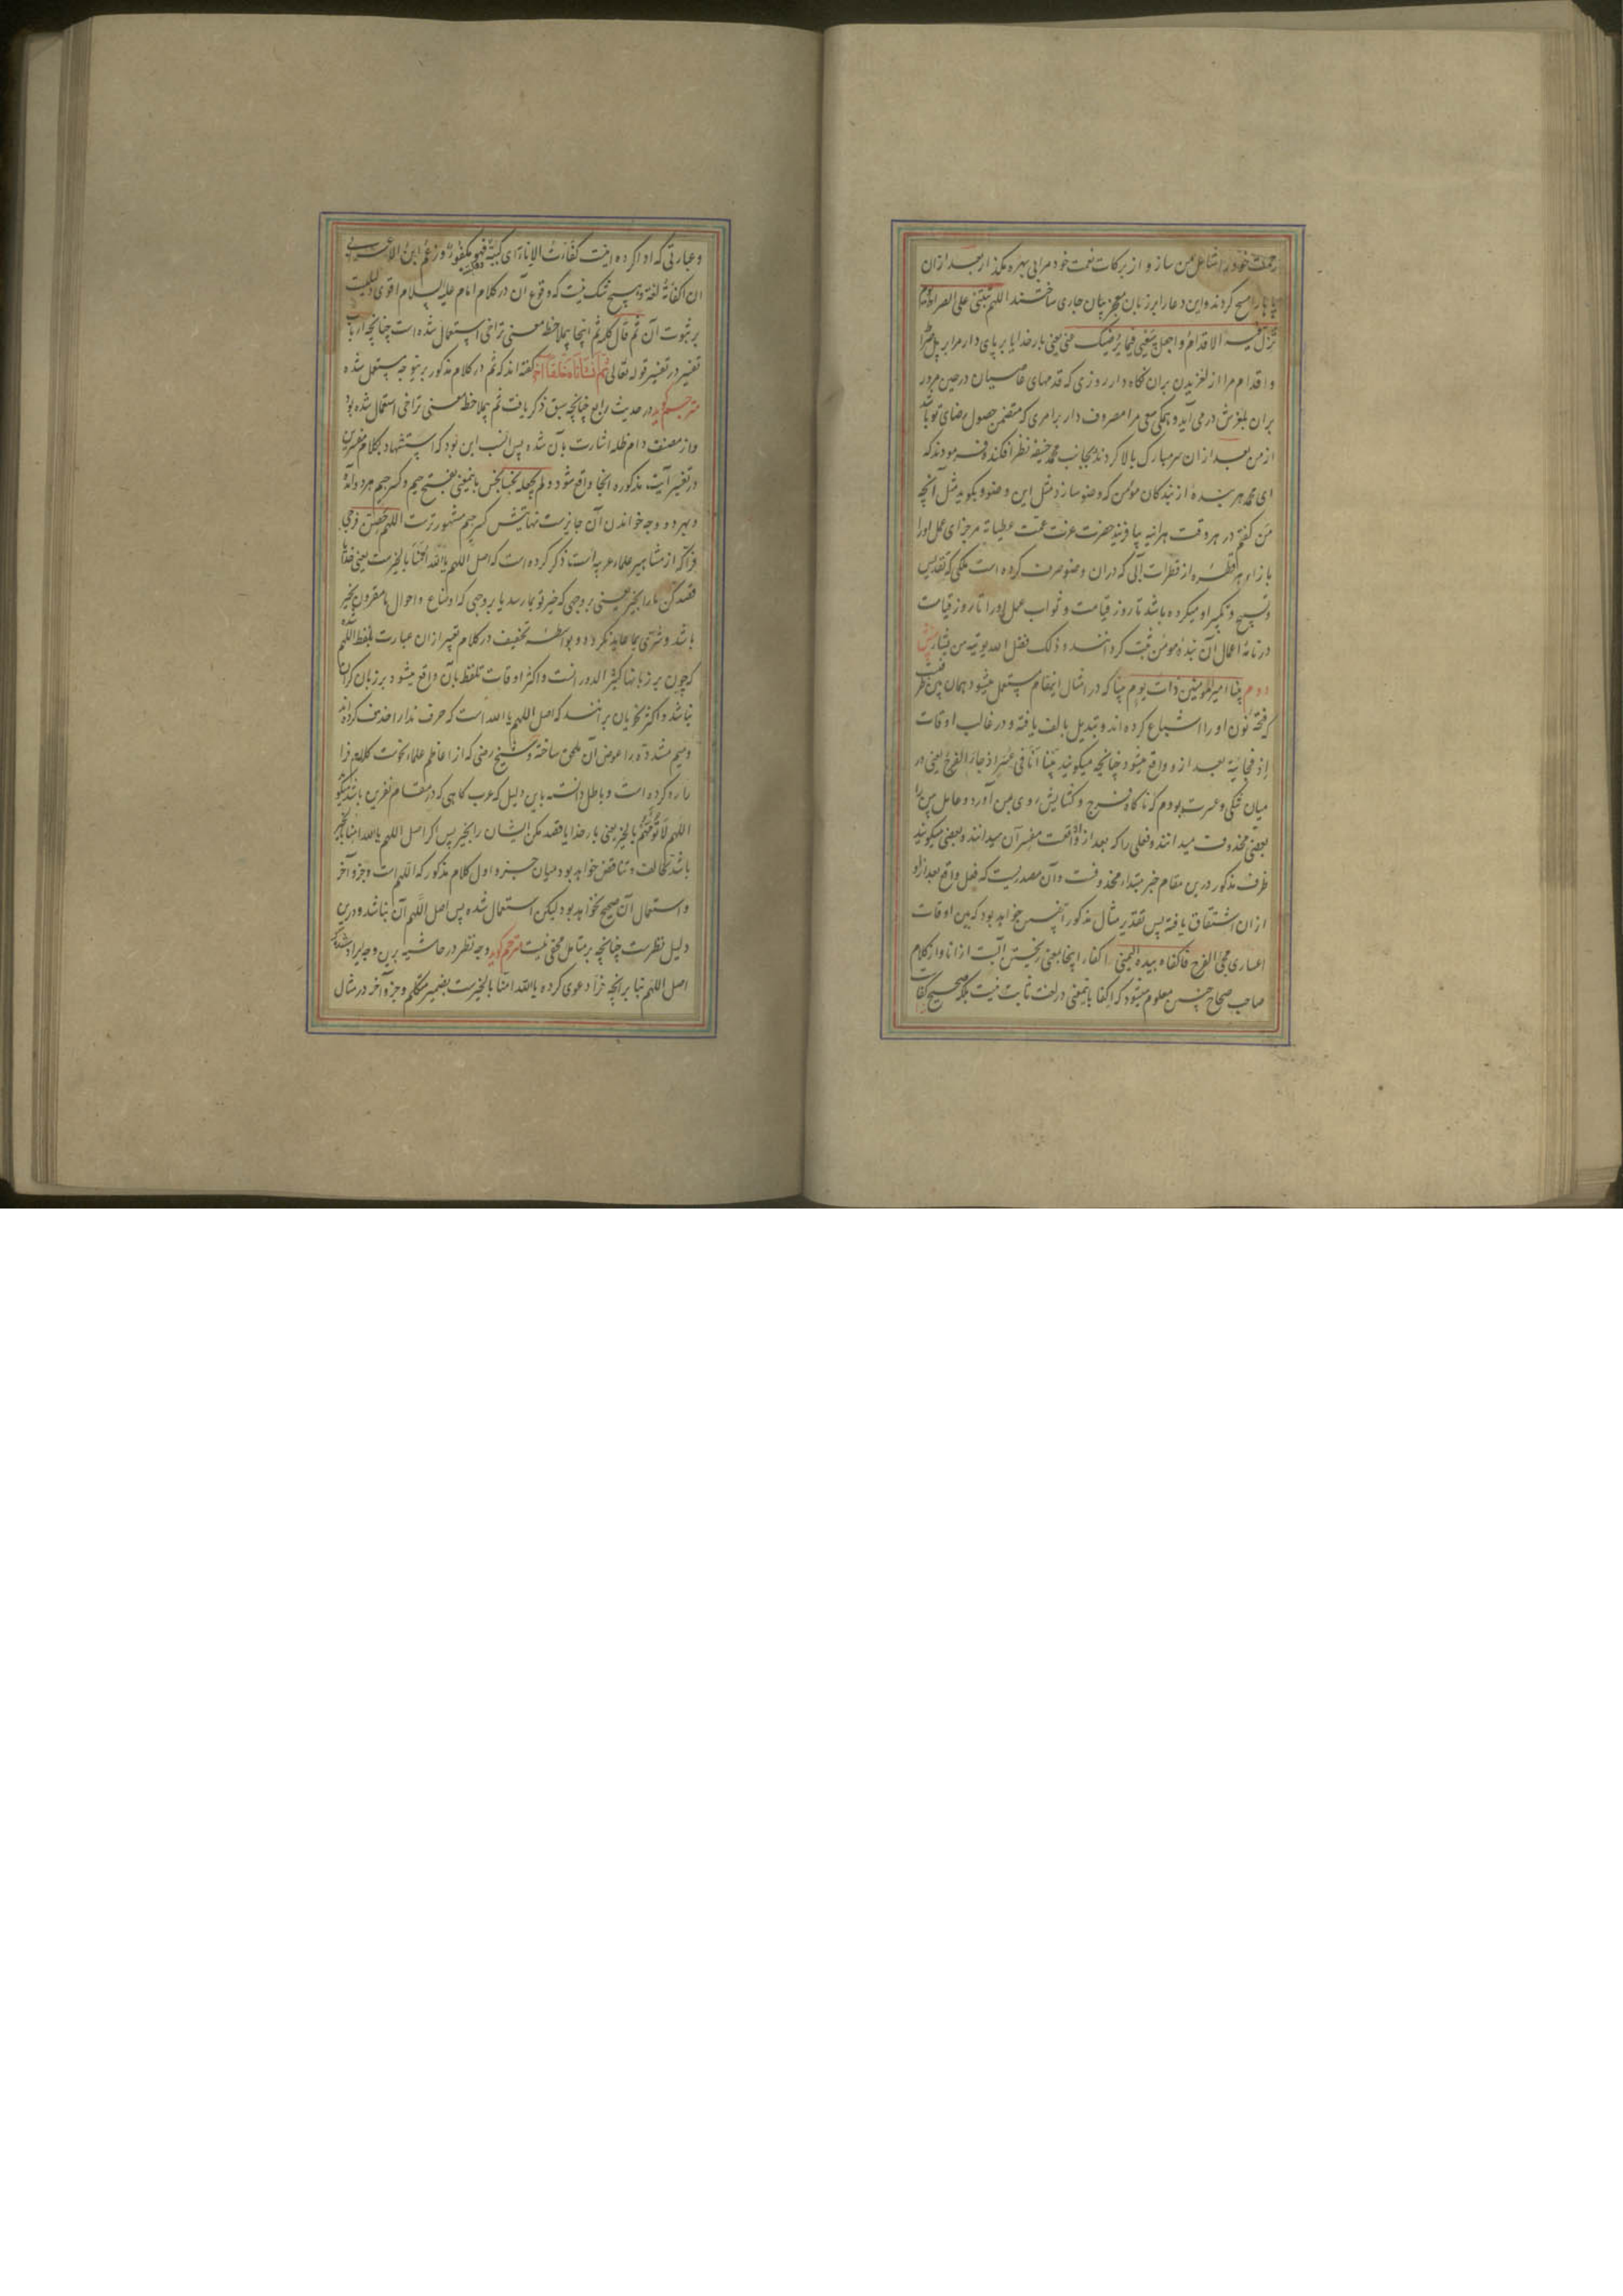 رحمت خود را شامل من ساز و از برکات نعمت خود مرا بی بهره مگذار بعد از آن
پاها را مسح کردند و این دعا را بر زبان معجز بیان جاری ساختند اللهم ثبتنی علی الصراط یوم
تزل فیه الاقدام و اجعل سعیی فیما یرضیک عنی یعنی بار خدایا بر پای دار مرا بر پل صراط
و اقدام مرا از لغزیدن بران نگاه دار روزی که قدمهای عاصیان در حین مرور
بران بلغزش در می آید و همکی سعی مرا مصروف دار برامری که متضمن حصول رضای تو باشد
از من بعد از ان سر مبارک بالا کردند و بجانب محمد حنیفه نظر افکنده فرمودند که
ای محمد هر بنده از بندگان مومن که وضو سازد مثل این وضو و بگوید مثل آنچه
من گفتم در هر وقت هر آینه بیافریند حضرت عزت عمت عطیاته مر جزای عمل او را
بازاء هر قطره از قطرات آبی که دران وضو صرف کرده است ملکی که تقدیس
و تسبیح و تکبیر او میکرده باشد تا روز قیامت و ثواب عمل او را تا روز قیامت
در نامه اعمال آن بنده مومن ثبت گردانند و ذلک فضل الله یوتیه من یشاء
دوم بینا امیر المومنین ذات یوم بینا که در امثال اینمقام مستعمل میشود همان بین ظرفست
که فتحه نون او را اشباع کرده اند و تبدیل بالف یافته و در غالب اوقات
اذ فجائیه بعد از و واقع میشود چنانچه میگویند بینا انا فی عسر اذ جاء الفرج یعنی در
میان تنگی و عسرت بودم که ناگاه فرج و گشایش روی بمن آورد و عامل بین را
بعضی محذوف میدانند و فعلی را که بعد از اذ واقعست مفسر آن میدانند و بعضی میگویند
ظرف مذکور درین مقام خبر مبتداء محذوفست و آن مصدریست که فعل واقع بعد از اذ
از ان اشتقاق یافته پس تقدیر مثال مذکور اینچنین خواهد بود که بین اوقات
اعساری مجئ الفرج فاکفاه بیده الیمنی اکفاء اینجا بمعنی ریختن آبست از انا و از کلام
صاحب صحاح چنین معلوم میشود که اکفا باینمعنی در لغت ثابت نیست بلکه صحیح کفات
و عبارتی که ادا کرده اینست کفأت الاناء ای کببته فهو مکفوء و زعم ابن الاعرابی
ان اکفاته لغة و هیچ شک نیست که وقوع آن در کلام امام علیه السلام اقوی دلیلیست
بر ثبوت آن ثم قال کلمه ثم اینجا بملاحظه معنی تراخی استعمال شده است چنانچه ارباب
تفسیر در تفسیر قوله تعالی ثم انشاناه خلقا اخر گفته اند که ثم در کلام مذکور برینوجه مستعمل شده
مترجم گوید در حدیث رابع چنانچه سبق ذکر یافت ثم بملاحظه معنی تراخی استعمال شده بود
و از مصنف دام ظله اشارت بان شده پس انسب این بود که استشهاد بکلام مفسرین
در تفسیر آیت مذکوره آنجا واقع شود و لم یجعله نجسا نجس باینمعنی بفتح جیم و کسر جیم هر دو آمده
و بهر دو وجه خواندن آن جایزست نهایتش کسر جیم مشهورترست اللهم حصن فرجی
فراکه از مشاهیر علماء عربیه است ذکر کرده است که اصل اللهم یا الله امنا بالخیرست یعنی خدایا
قصد کن ما را بخیر یعنی بروجهی که خیر تو بما رسد یا بروجهی که اوضاع و احوال ما مقرون بخیر
باشد و شری بما عاید نگردد و بواسطه تخفیف در کلام تعبیر از ان عبارت بلفظ اللهم شده
که چون بر زبانها کثیر الدورانست و اکثر اوقات تلفظ بآن واقع میشود بر زبان گران
نباشد و اکثر نحویان برانند که اصل اللهم یا الله است که حرف ندا را حذف کرده اند
و میم مشدده را عوض آن ملحق ساخته و شیخ رضی که از اعاظم علماء نحوست کلام فرا
را رد کرده است و باطل دانسته باین دلیل که عرب گاهی که در مقام نفرین باشند میگویند
اللهم لا تؤمهم بالخیر یعنی بار خدایا قصد مکن ایشان را بخیر پس اگر اصل اللهم یا الله امنا بالخیر
باشد مخالفت و تناقض خواهد بود میان جزو اول کلام مذکور که اللهم است و جزو آخر
و استعمال آن صحیح نخواهد بود لیکن استعمال شده پس اصل اللهم آن نباشد و درین
دلیل نظرست چنانچه بر متامل مخفی نیست مترجم گوید وجه نظر در حاشیه برین وجه ایراد شده که
اصل اللهم بنا بر انچه فرا دعوی کرده یا الله امنا بالخیرست بضمیر متکلم و جزو آخر در مثال